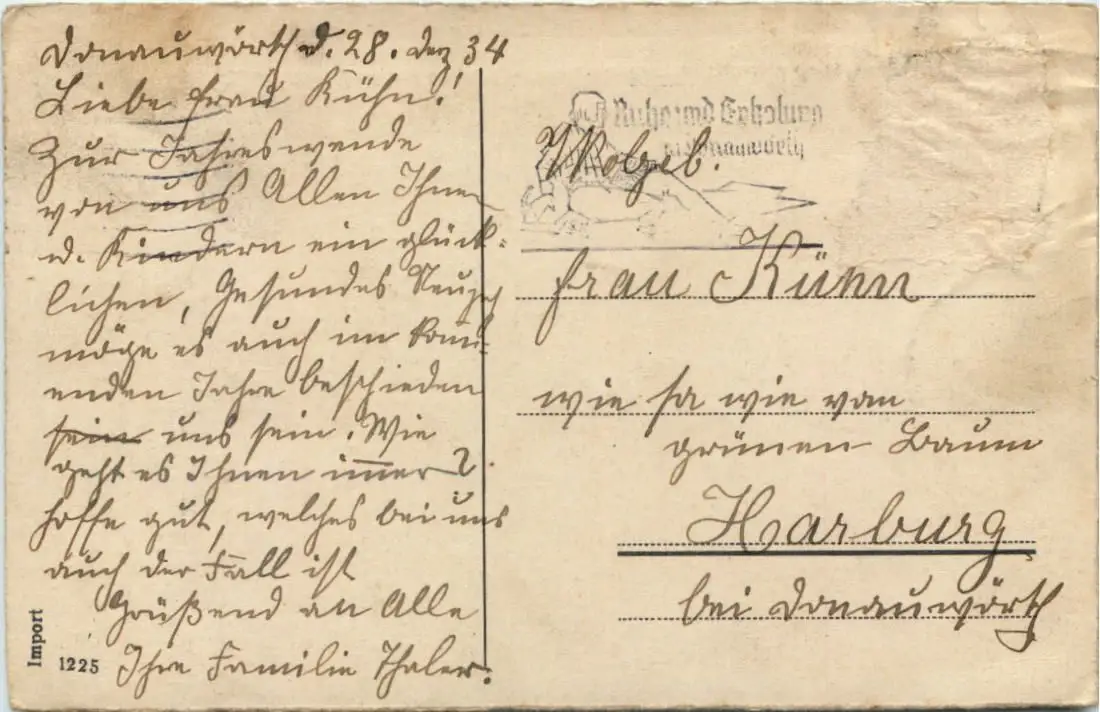 Donauwörth d. 28. Dez. 34
Liebe Frau Kühn!
Zur Jahreswende
von uns Allen Ihnen
u. Kindern ein glück-
lichen, Gesundes Neujah
möge es auch im kom-
enden Jahre beschieden
sein uns sein. Wie
geht es Ihnen immer?
hoffe gut, welches bei uns
auch der Fall ist
Grüßend an Alle
Ihre Familie Thaler.
Import
1225
Ruhe und Erholung
in Donauwörth
Wolgeb.
Frau Kühn
grünen Baum
Harburg
bei Donauwörth